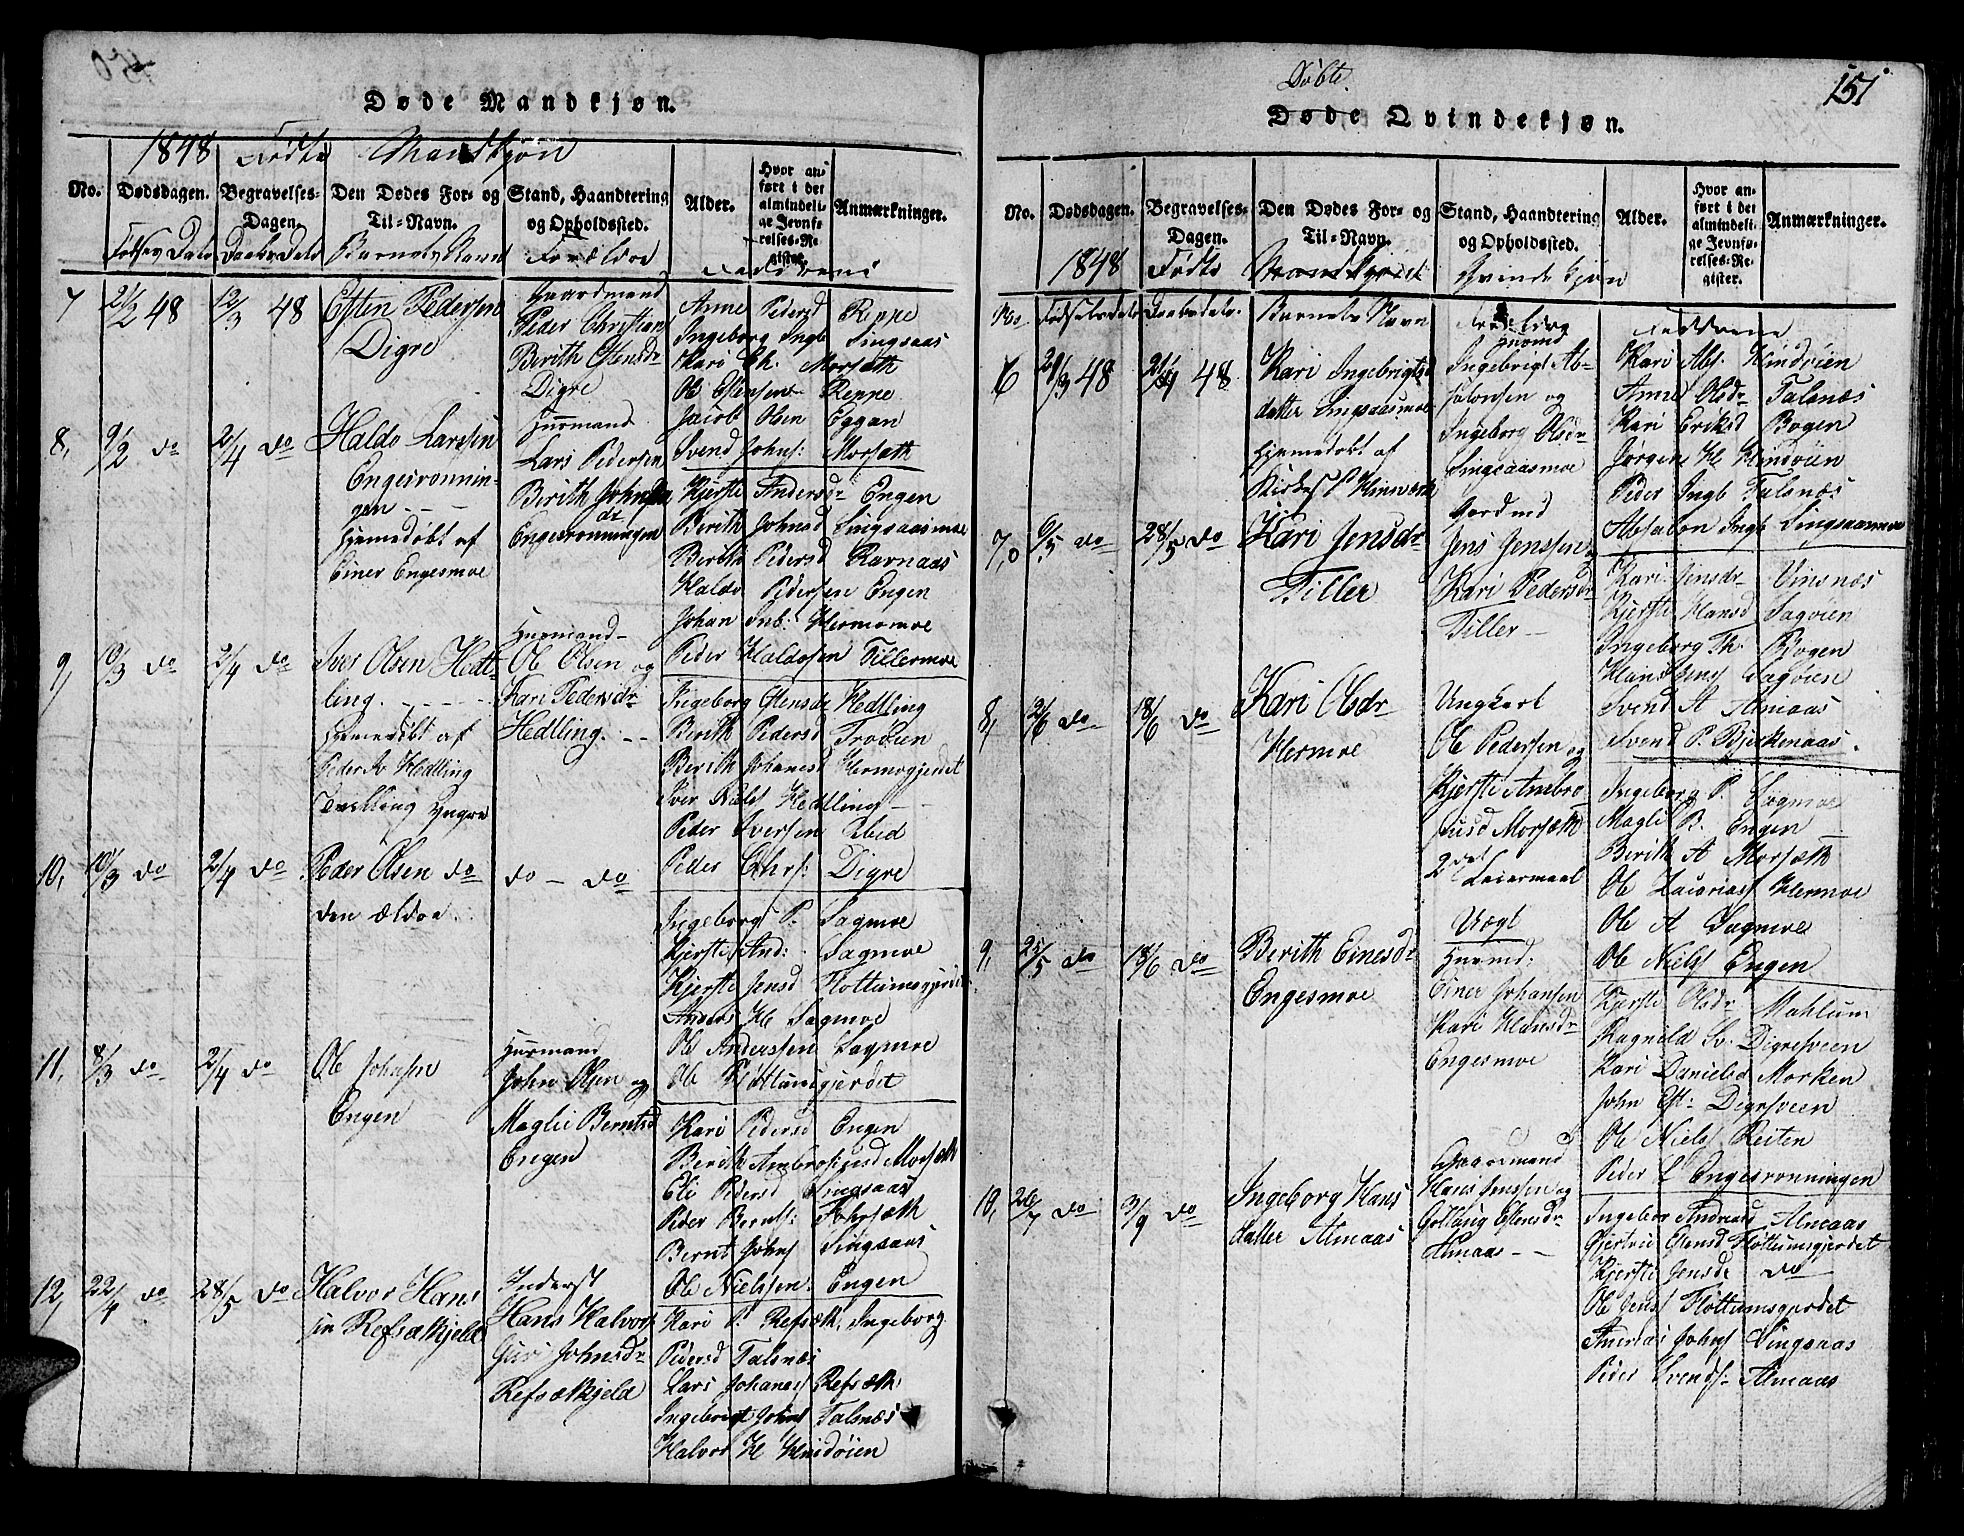 Døde Mandkjøn.
1848 Fødte Mandkjøn
No. Dødsdagen. Begravelses-Dagen. Den Dødes For- og Til-Navn. Stand, Haandtering og Opholdssted. Alder. Hvor anført i det almindelige Jevnførelses-Register. Anmærkninger.
Barnets Navn Forældre
7 48 12/3 48 Esten Pedersen
Digre
Gaardmand
Peder Christian
Berith Estensdr
Digre
Anne Pedersd Reppe
Ingeborg Ingb Singsaas
Kari Ch. Morsæth
Ole Estensen Reppe
Jacob Olsen Eggan
Svend Johns: Morsæth
8, 9/2 do 2/4 do Haldo Larssen
Engesronnin-
gen - -
Hjemedøbt af
Einer Engesmoe
Huusmand
Lars Pedersen
Berith Johns
dr
Engesronningen
Kjersti Andersdr Engen
Berith Johnsd Singsaasmoe
Berith Pedersd Ravnaas
Haldo Pedersen Engen
Johan Hermomoe
Peder Haldosen Tillermoe
9, 10/3 do 2/4 do Iver Olsen Hedt-
ling. - - - -
Hjemedøbt af
Hedling
Tvilling yngre
Husmand
Ole Olsen og
Kari Pedersdr
Hedling. - -
Ingeborg Estensdr Hedling
Berith Pedersd Trøøien
Berith Johansd Hermogjerdet
Iver Nils Hedling
Peder Iversen Ibid
Peder Chrs: Digre
10, 10/3 do 2/4 do Peder Olsen do
den ældre
do - do
Ingeborg P. Sagmoe
Kjersti And: Sagmoe
Kjersti Jensd Flottumsgjerdet
Anders H Sagmoe
Ole Anderssen Sagmoe
Ole Flottumsgjerdet
11, 8/3 do 2/4 do Ole Johnsen
Engen
Husmand
John Olsen og
Magli Berntsd
Engen
Kari Pedersd Engen
Berith Ambrosiusd Morsæth
Eli Pedersd Singsaas
Peder Bernts: Forsæth
Bernt Johns Singsaas
Ole Nielssen Engen
12, 22/4 do 28/5 do Halvor Hans
sen Refsætkjeld
Inderst
Hans Halvors
Guri Johnsdr
Refsætkjeld
Kari P. Refsæth, Ingeborg
Pedersd Talsnæs
Lars Johanes Refsæth
Ingebrigt Johns Talsnæs
Halvor H Hindøien
151
Døbte
Døde Qvindekjøn.
No. Dødsdagen. Begravelses-Dagen. Den Dødes For- og Til-Navn. Stand, Haandtering og Opholdssted. Alder. Hvor anført i det almindelige Jevnførelses-Register. Anmærkninger.
1848 Fødte Mandkjøn Qvindekjøn
No Fødselsdato Daabsdato. Barnets Navn Forældre Faddrene
6 21/3 48 48 Kari Ingebrigts
datter Singsaasmoe
Hjemedøbt af
Kirkes
Ingebrigt Ab-
salonsen og
Ingeborg Olsdr
Singsaasmoe
Kari Abs Hindøien
Anne Olsdr Talsnæs
Kari Eriksd Bogen
Jørgen H Hindøien
Peder Ingb Talsnæs
Absalon Ingb Singsaasmoe
7, 6/5 do 28/5 do Kari Jensdr
Tiller
Jens Jenssen
Kari Pedersdr
Tiller -
Kari Jensdr Vinsnæs
Kjersti Hansd Sagøien
Ingeborg Th. Bjogen
Hans Jens Sagøien
Svend A Almaas
Svend P. Bjerkenaas.
8, 2/6 do 18/6 do Kari Olsdr
Hermoe
Ungkarl
Ole Pedersen og
Kjersti Ambro
siusd Morsæth
2det
Leiermaal
Ingeborg P. Sagmoe
Magli B. Engen
Berith A Morsæth
Ole Zacarias Hermoe
Ole A Sagmoe
Ole Niels Engen
9, 25/5 do 18/6 do Berith Einersdr
Engesmoe
Uægt
Husmd:
Einer Johansen
Kari Hansdr
Engesmoe
Kjersti Olsdr Mahlum
Ragnild Sv. Digresveen
Kari Danielsd Morken
John Est: Digresveen
Ole Niels Reiten
Peder L Engesronningen
10, 26/7 do 3/9 do Ingeborg Hans
datter Almaas
Gaardmand
Hans Jenssen og
Gollaug Estensdr
Almaas - -
Ingebor Andreasd Almaas
Gjertrud Estensd Flottumsgjerdet
Kjersti Jensdr do
Ole Jens Flottumsgjerdet
Andreas Johns Singsaas
Peder Svends: Almaas